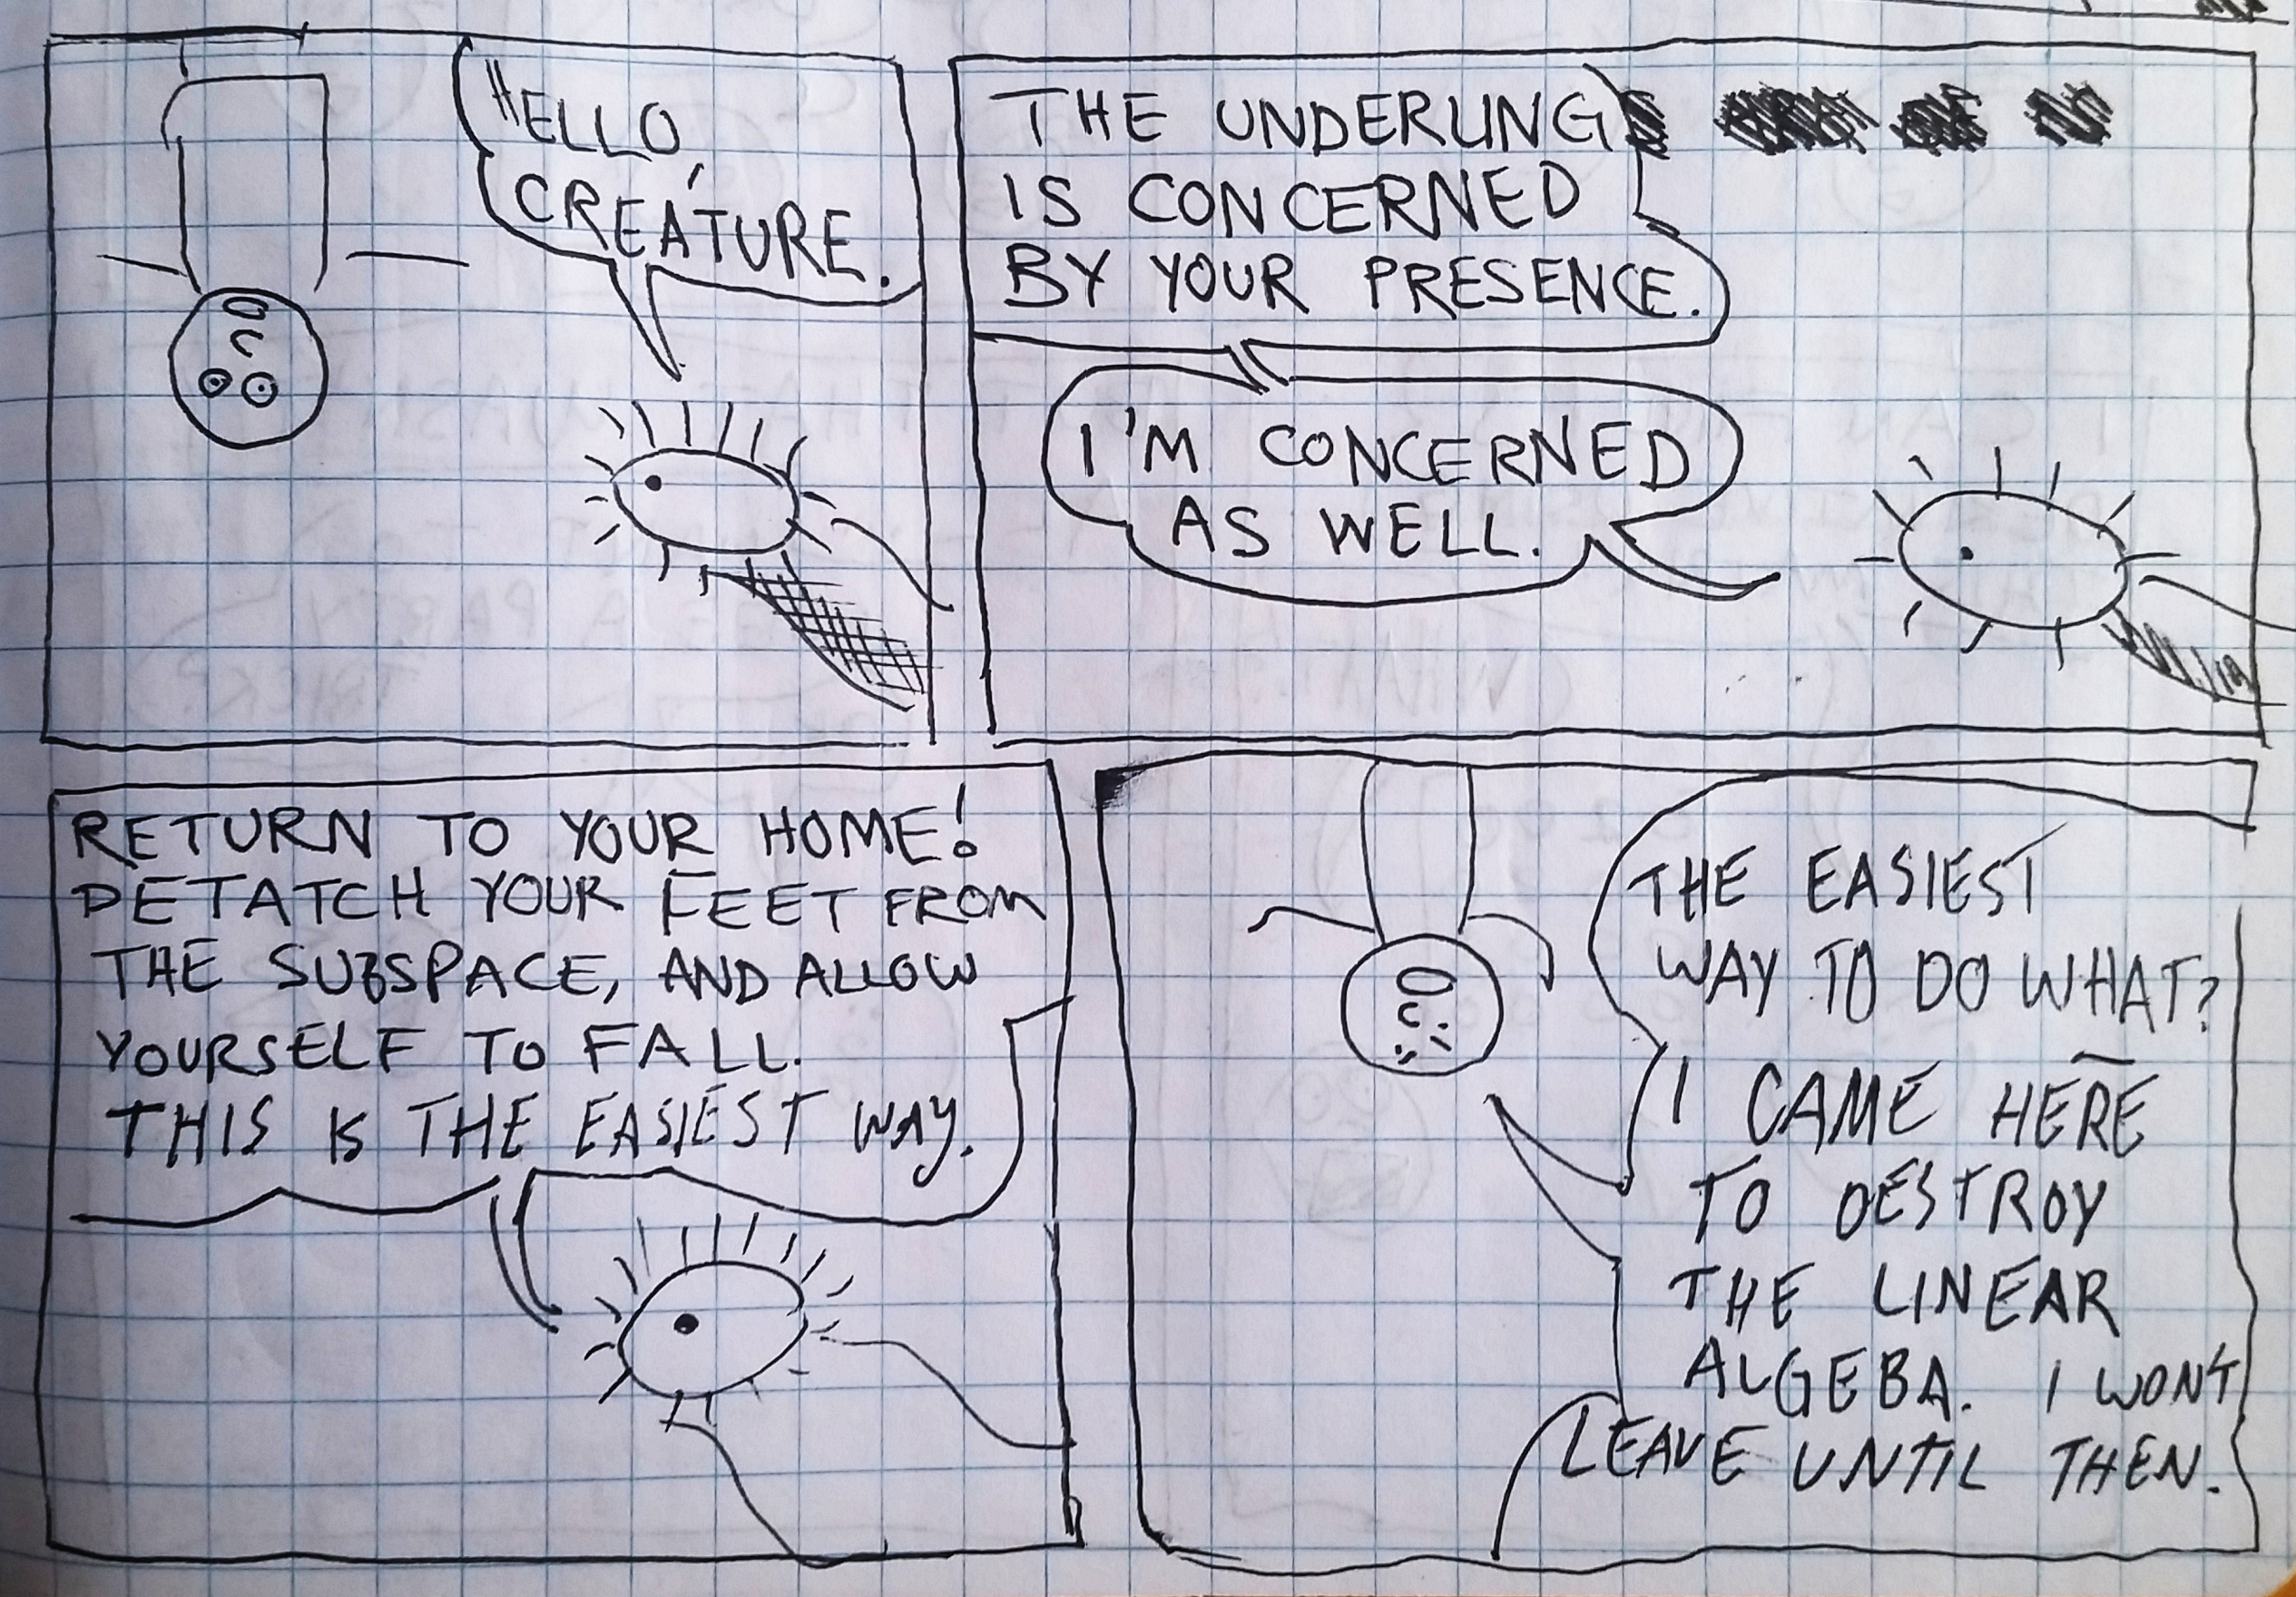 HELLO,
CREATURE.
THE UNDERLING
IS CONCERNED
BY YOUR PRESENCE.
I'M CONCERNED
AS WELL.
RETURN TO YOUR HOME!
DETATCH YOUR FEET FROM
THE SUBSPACE, AND ALLOW
YOURSELF TO FALL.
THIS IS THE EASIEST WAY.
THE EASIEST
WAY TO DO WHAT?
I CAME HERE
TO DESTROY
THE LINEAR
ALGEBA. I WONT
LEAVE UNTIL THEN.